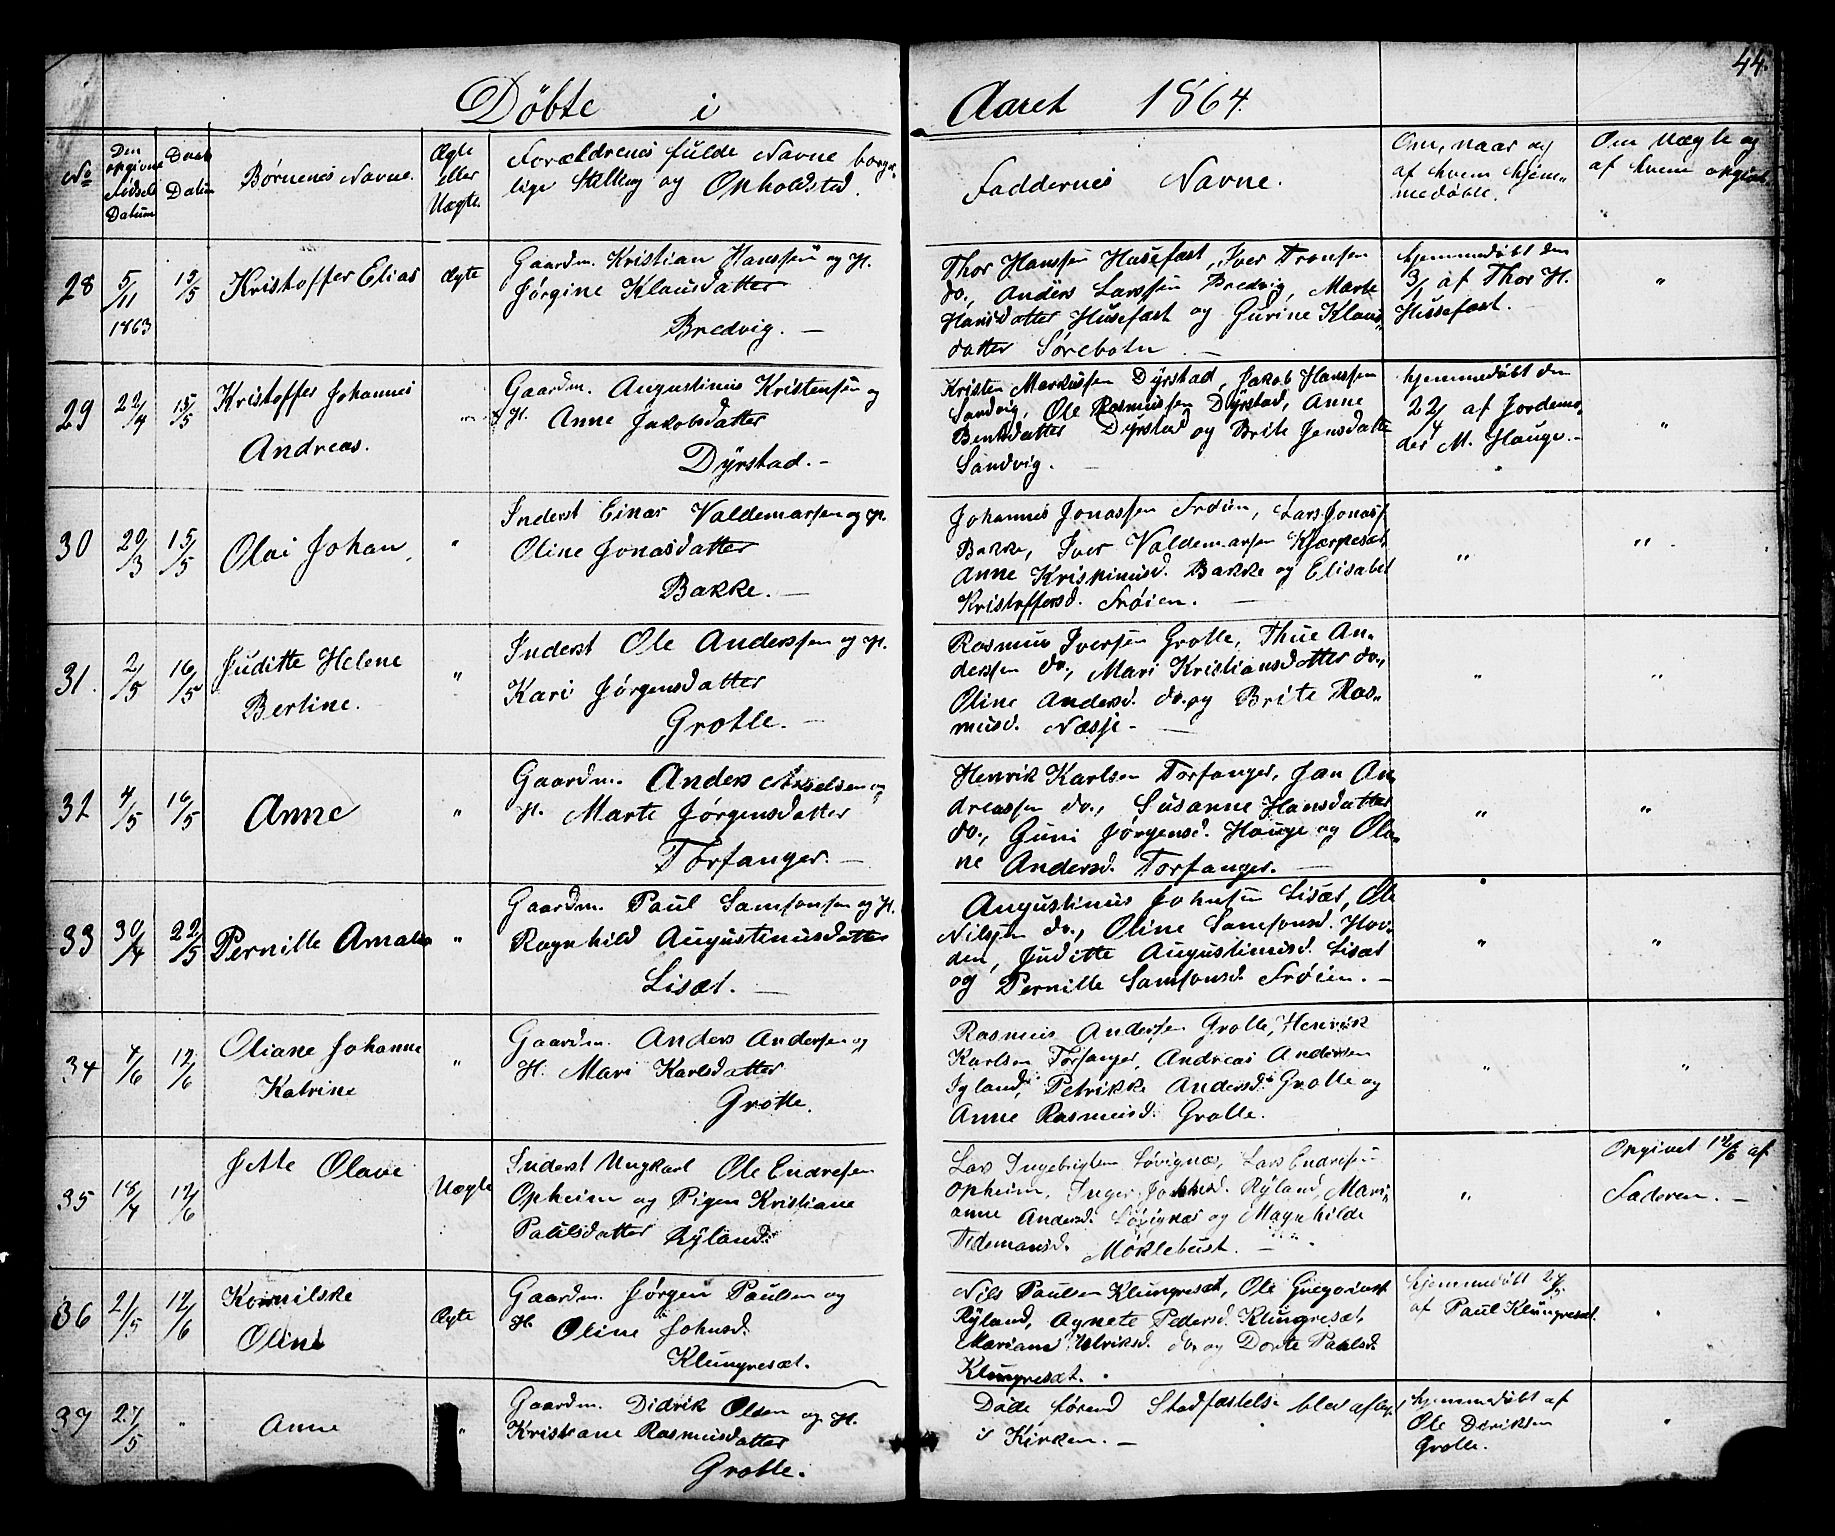 44.
Døbte i Aaret 1864.
No
Den opgivne Fødsels Datum
Daab Datum
Børnenes Navne.
Ægte eller Uægte.
Forældrenes fulde Navne borger-
lige Stilling og Opholdsted.
Faddernes Navne.
Om, naar og
af hvem hjem-
medøbte.
Om Uægte og
af hvem opgivet.
28 5/11 1863 15/5 Kristoffer Elias Ægte
Gaardm. Kristian Hanssen og H.
Jørgine Klausdatter
Bredvig. —
Thor Hanssen Husefæst, Iver Tronsen
do., Anders Larssen Bredvig, Marte
Hansdatter Husefæst og Gurine Klaus-
datter Sørebotn —
hjemmedøbt den
3/1 af Thor H.
Husefæst.
"
29 22/4 15/5 Kristoffer Johannes
Andreas. "
Gaardm. Augustinus Kristensen og
H. Anne Jakobsdatter
Dyrstad. -
Kristen Markussen Dyrstad, Jakob Hanssen
Sandvig, Ole Rasmussen Dyrstad, Anne
Bentsdatter Dyrstad og Brite Jensdatter
Sandvig. —
hjemmedøbt den
22/4 af Jordemo-
der M. Hauge. -
"
30 20/3 15/5 Olai Johan, "
Inderst Einar Valdemarsen og H.
Oline Jonasdatter
Bakke. —
Johannes Jonassen Frøien, Lars Jonass
Bakke, Iver Valdemarsen Kjærpesæt,
Anne Krispinusd. Bakke og Elisabet
Kristoffersd. Frøien. —
" "
31. 2/5 16/5 Juditte Helene
Bertine. "
Inderst Ole Anderssen og H.
Kari Jørgensdatter
Grotle. —
Rasmus Iversen Grotle, Thue An-
derssen do., Mari Kristiansdatter do.,
Oline Andersd. do. og Brite Ras-
musd. Næsje -
" "
32 4/5 16/5 Anne "
Gaardm. Anders Akselsen og
H. Marte Jørgensdatter
Torfanger. —
Henrik Karlsen Torfanger, Jan An-
dreassen do., Susanne Hansdatter
do., Guni Jørgensd. Hauge og Olu-
ne Andersd. Torfanger. —
" "
33 30/4 22/5 Pernille Amalie "
Gaardm. Paul Samsonsen og H.
Ragnhild Augustinusdatter
Lisæt. —
Augustinus Johnsen Lisæt, Ole
Nilssen do., Oline Samsonsd. Hovi-
den, Juditte Augustinusd. Lisæt
og Pernille Samsonsd. Frøien. -
" "
34 4/6 12/6 Oliane Johanne
Katrine "
Gaardm. Anders Andersen og
H. Mari Karlsdatter
Grotle.
Rasmus Andersen Grotle, Henrik
Karlsen Torfanger, Andreas Andersen
Igland, Petrikke Andersd. Grotle og
Anne Rasmusd. Grotle.
" "
35 18/4 12/6 Jette Olave Uægte
Inderst Ungkarl Ole Endresen
Opheim og Pigen Kristiane
Paulsdatter Ryland.
Lars Ingebrigtsen Løvignæs, Lars Endresen
Opheim, Inger Ryland, Mari-
anne Andersd. Løvignæs og Magnhilde
Tidemansd. Moklebust. —
"
Opgivet 12/6 af
Faderen. —
36 21/5 12/6 Kornilske
Oline Ægte
Gaardm. Jørgen Paulsen og
H. Oline Johnsd.
Klungresæt.
Nils Paulsen Klungresæt, Ole Gregoriuss
Ryland, Agnete Pedersd. Klungresæt,
Mariane Ulriksd. do. og Dorte Paulsd.
Klungresæt.
hjemmedøbt 24/5
af Paul Klungresæt.
"
37 27/5 " Anne "
Gaardm. Didrik Olsen og H.
Kristiane Rasmusdatter
Grotle.
Døde førend Stadfæstelse blev aflagt
i Kirken. —
hjemmedøbt af
Ole Deriksen
Grotle.
"